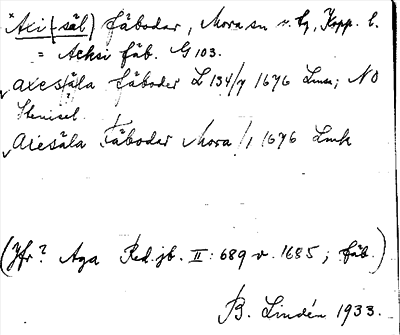 *Axi(säl) fäbodar, Mora sn o. tg, Kopp. l.
= Acksi fäb. G 103.
Axesäla fäboder L 134/7 1676 Lmk; NO
Stenisel.
Aiesäla Fäbodar Mora /1 1676 Lmk
(Jfr? Aga Red. jb. II: 689 v. 1685; fäb.)
B. Lindén 1933.